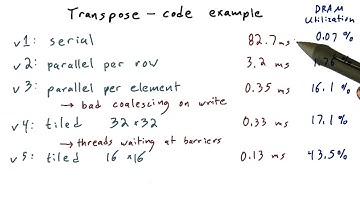 Transpose - code example DRAM Utilization
v1: serial 82.7ms 0.07%
v2: parallel per row 3.2 ms
v3: parallel per element 0.35 ms 16.1%
→ bad coalescing on write
v4: tiled 32*32 0.33 ms 17.1%
→ threads waiting at barriers
v5: tiled 16*16 0.13 ms 43.5%